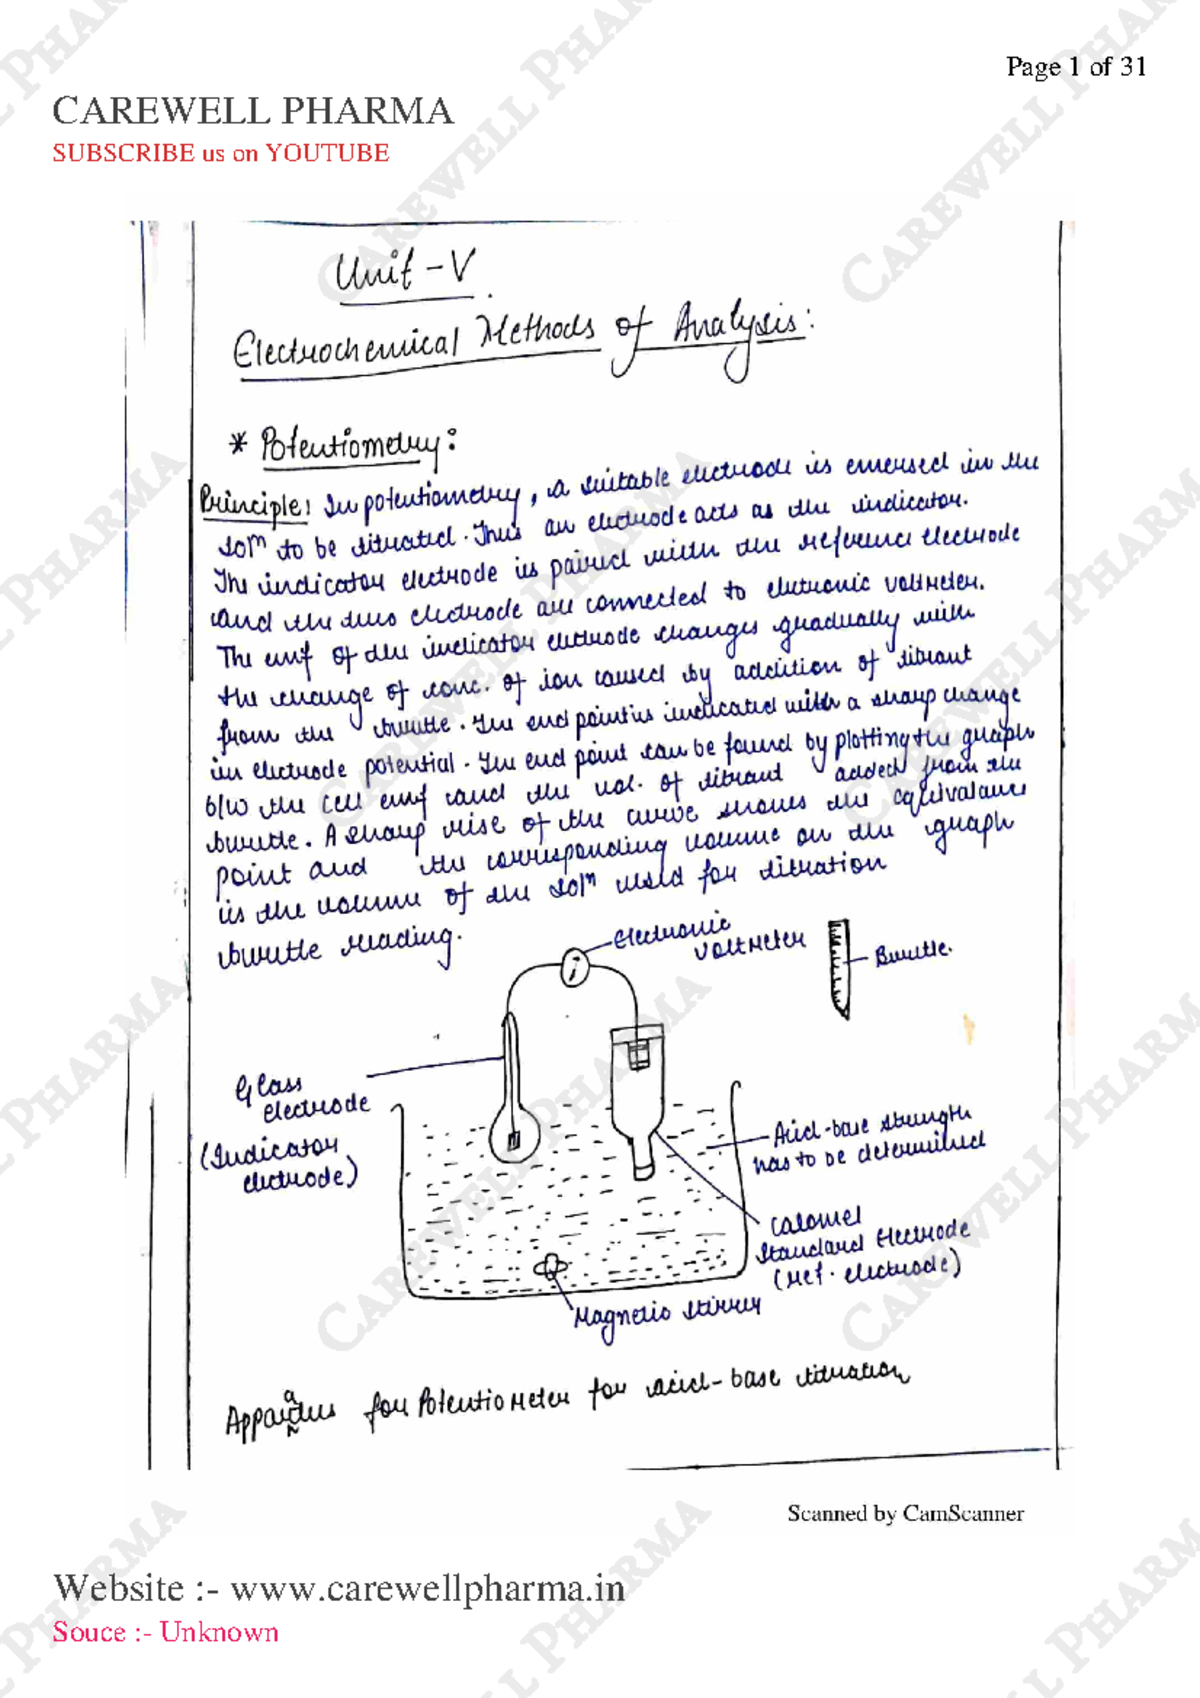 Page 1 of 31
CAREWELL PHARMA
SUBSCRIBE us on YOUTUBE
Unit - V
Electrochemical Methods of Analysis:
* Potentiometry:
Principle: In potentiometry, a suitable electrode is emersed in the
solⁿ to be titrated. Thus an electrode acts as the indicator.
The indicator electrode is paired with the reference electrode
and the two electrode are connected to electronic voltmeter.
The emf of the indicator electrode changes gradually with
the change of conc. of ion caused by addition of titrant
from the burette. The end point is indicated with a sharp change
in electrode potential. The end point can be found by plotting the graph
b/w the cell emf and the vol. of titrant added from the
burette. A sharp rise of the curve shows the equivalance
point and the corresponding volume on the graph
is the volume of the solⁿ used for titration
burette reading.
Electronic
voltmeter
Burette.
Glass
electrode
(Indicator
electrode)
Acid-base strength
has to be determined
Calomel
standard electrode
(ref. electrode)
Magnetic stirrer
Apparatus for Potentiometer for acid-base titration
Scanned by CamScanner
Website :- www.carewellpharma.in
Souce :- Unknown
CAREWELL PHARMA